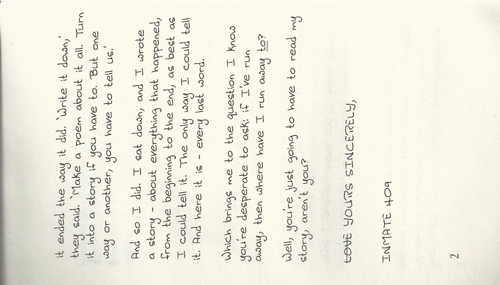 it ended the way it did. 'Write it down,'
they said. 'Make a poem about it all. Turn
it into a story if you have to. But one
way or another, you have to tell us.'
And so I did. I sat down, and I wrote
a story - about everything that happened,
from the beginning to the end, as best as
I could tell it. The only way I could tell
it. And here it is - every last word.
Which brings me to the question I know
you're desperate to ask: if I've run
away, then where have I run away to?
Well, you're just going to have to read my
story, aren't you?
LOVE YOURS SINCERELY,
INMATE 409
2